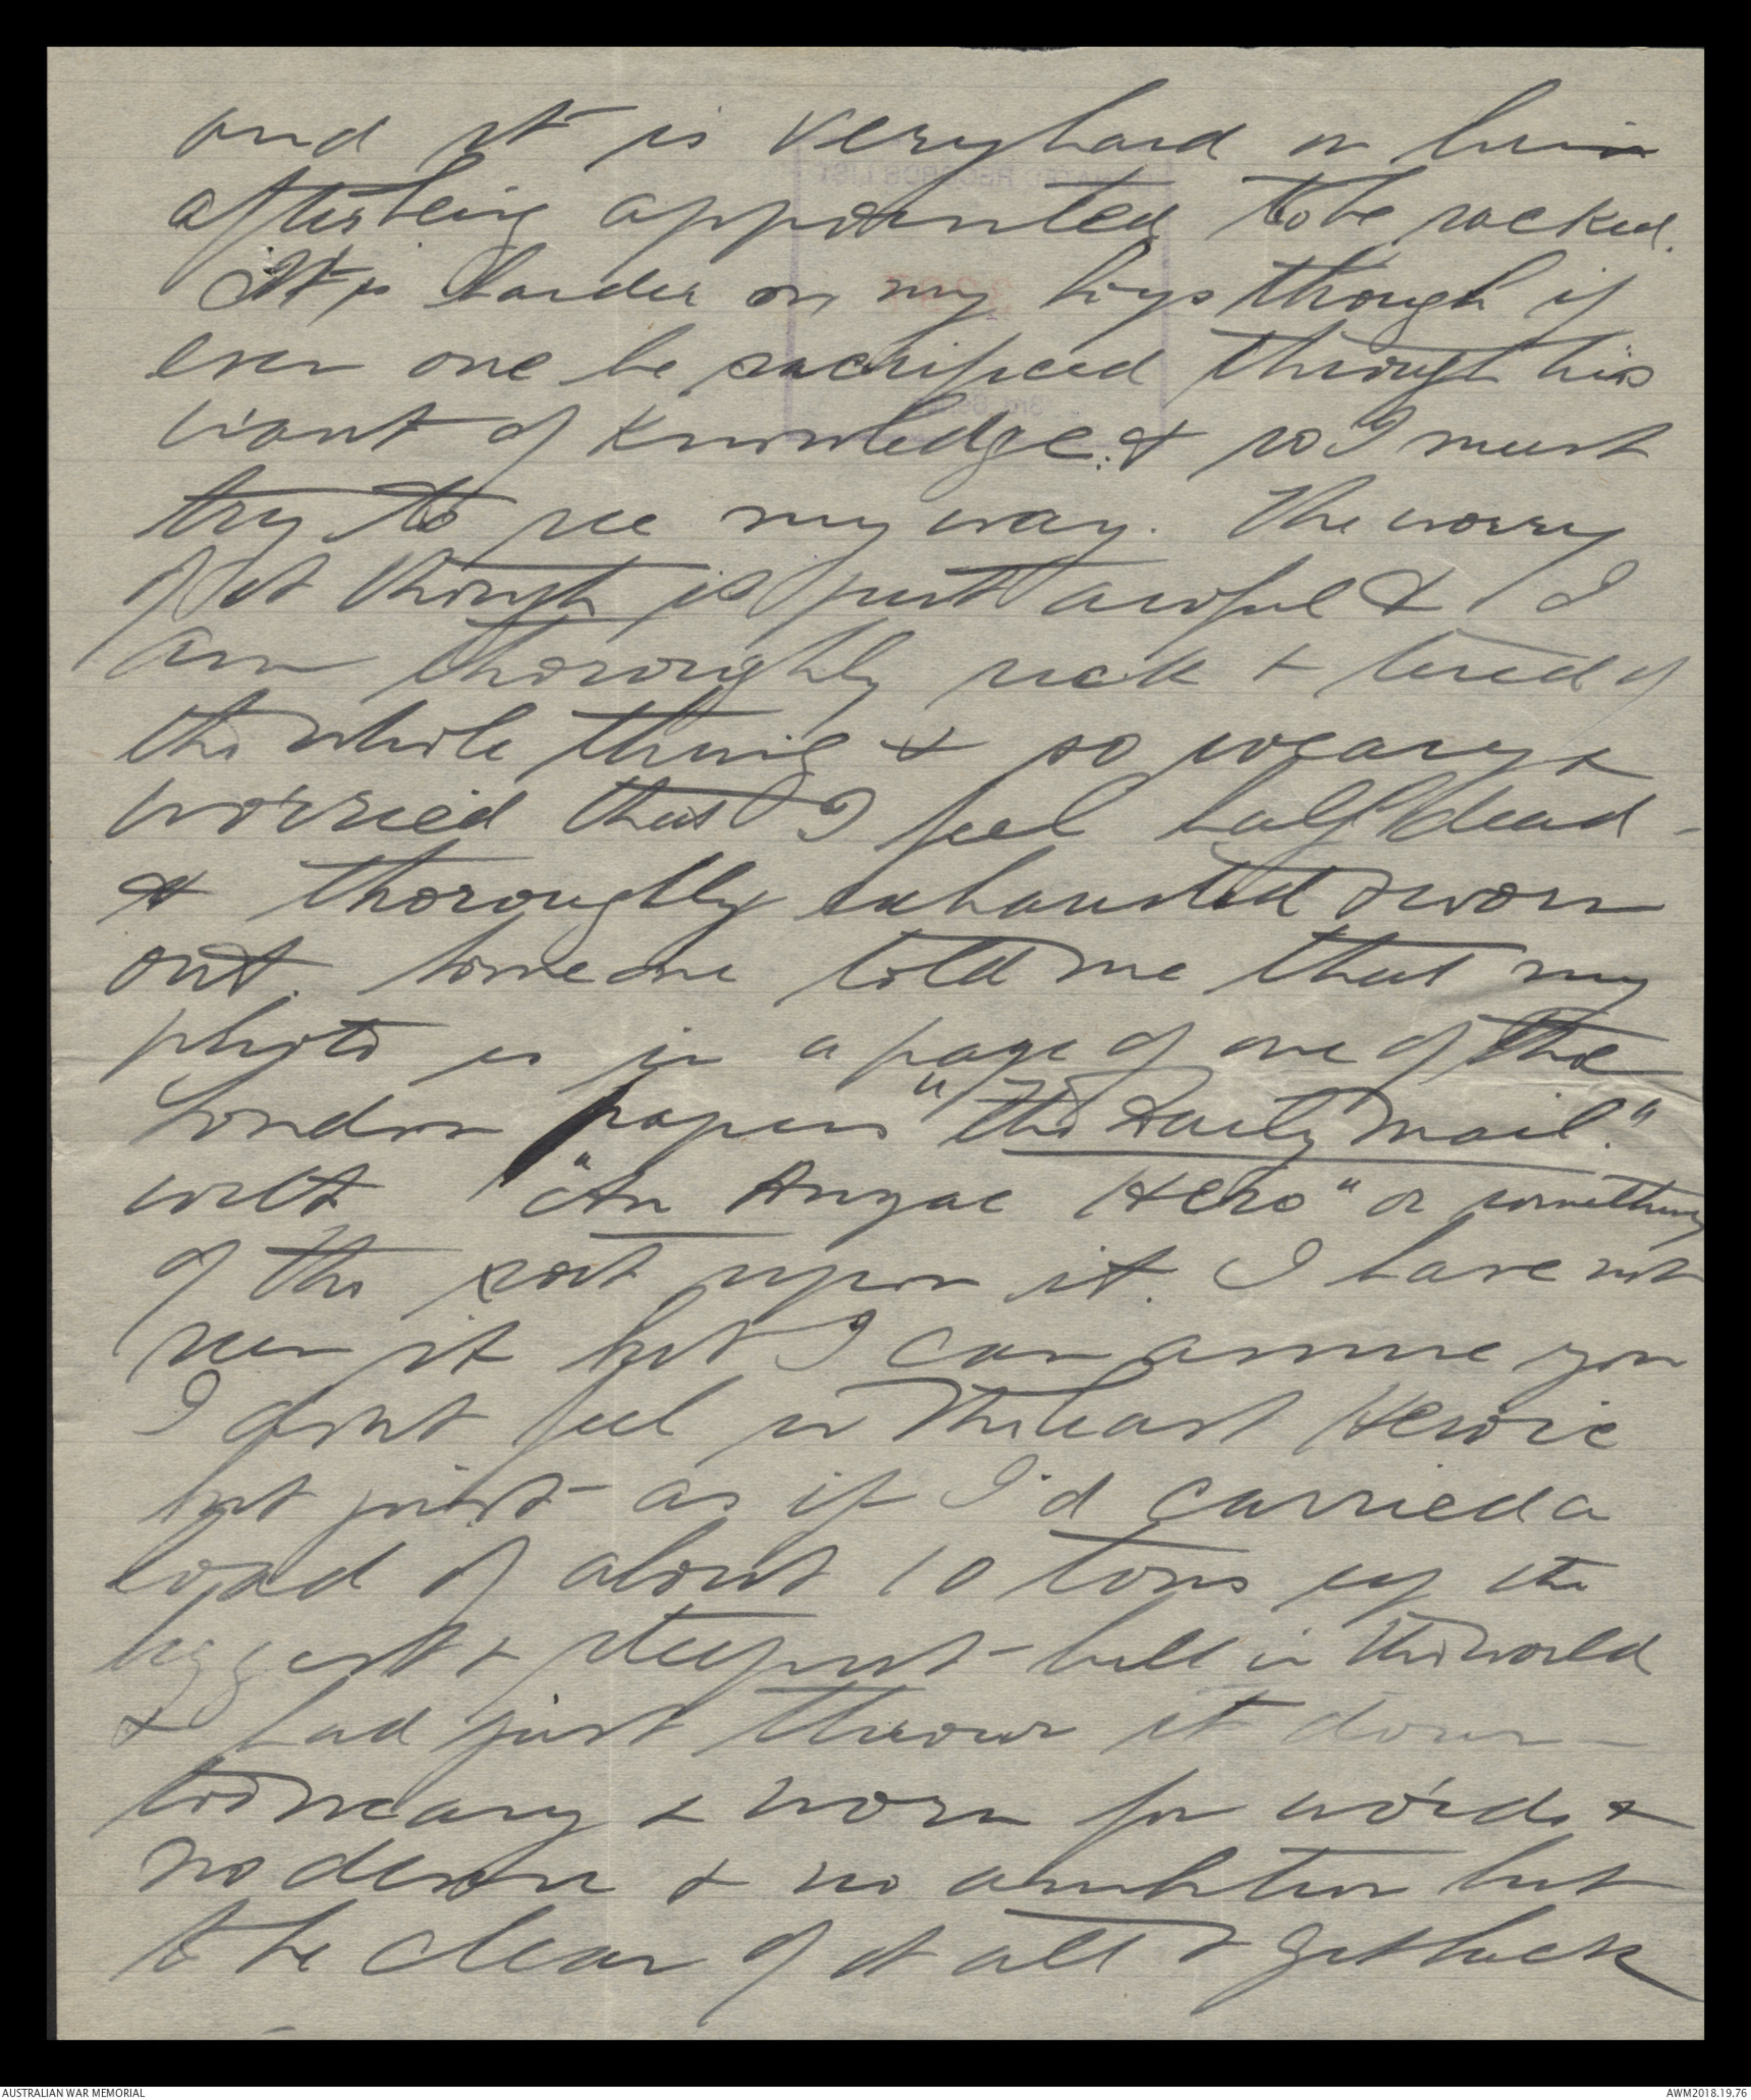 and it is very hard on him
after being appointed to be sacked.
It is harder on my boys though if
even one be sacrificed through his
want of knowledge: & so I must
try to see my way. The worry
of it though is just awful & I
am thoroughly sick & tired of
the whole thing & so weary &
worried that I feel half dead -
& thoroughly exhausted & worn
out. Someone told me that my
photo is in a page of one of the
London papers "The Daily Mail."
with "An Anzac Hero" or something
of the sort upon it. I have not
seen it but I can assure you
I don't feel in the least Heroic
but just as if I'd carried a
load of about 10 tons up the
biggest & steepest hill in the world
& had just thrown it down -
too weary & worn for words &
no desire & no ambition but
to be clear of it all & get back
AUSTRALIAN WAR MEMORIAL
AWM2018.19.76